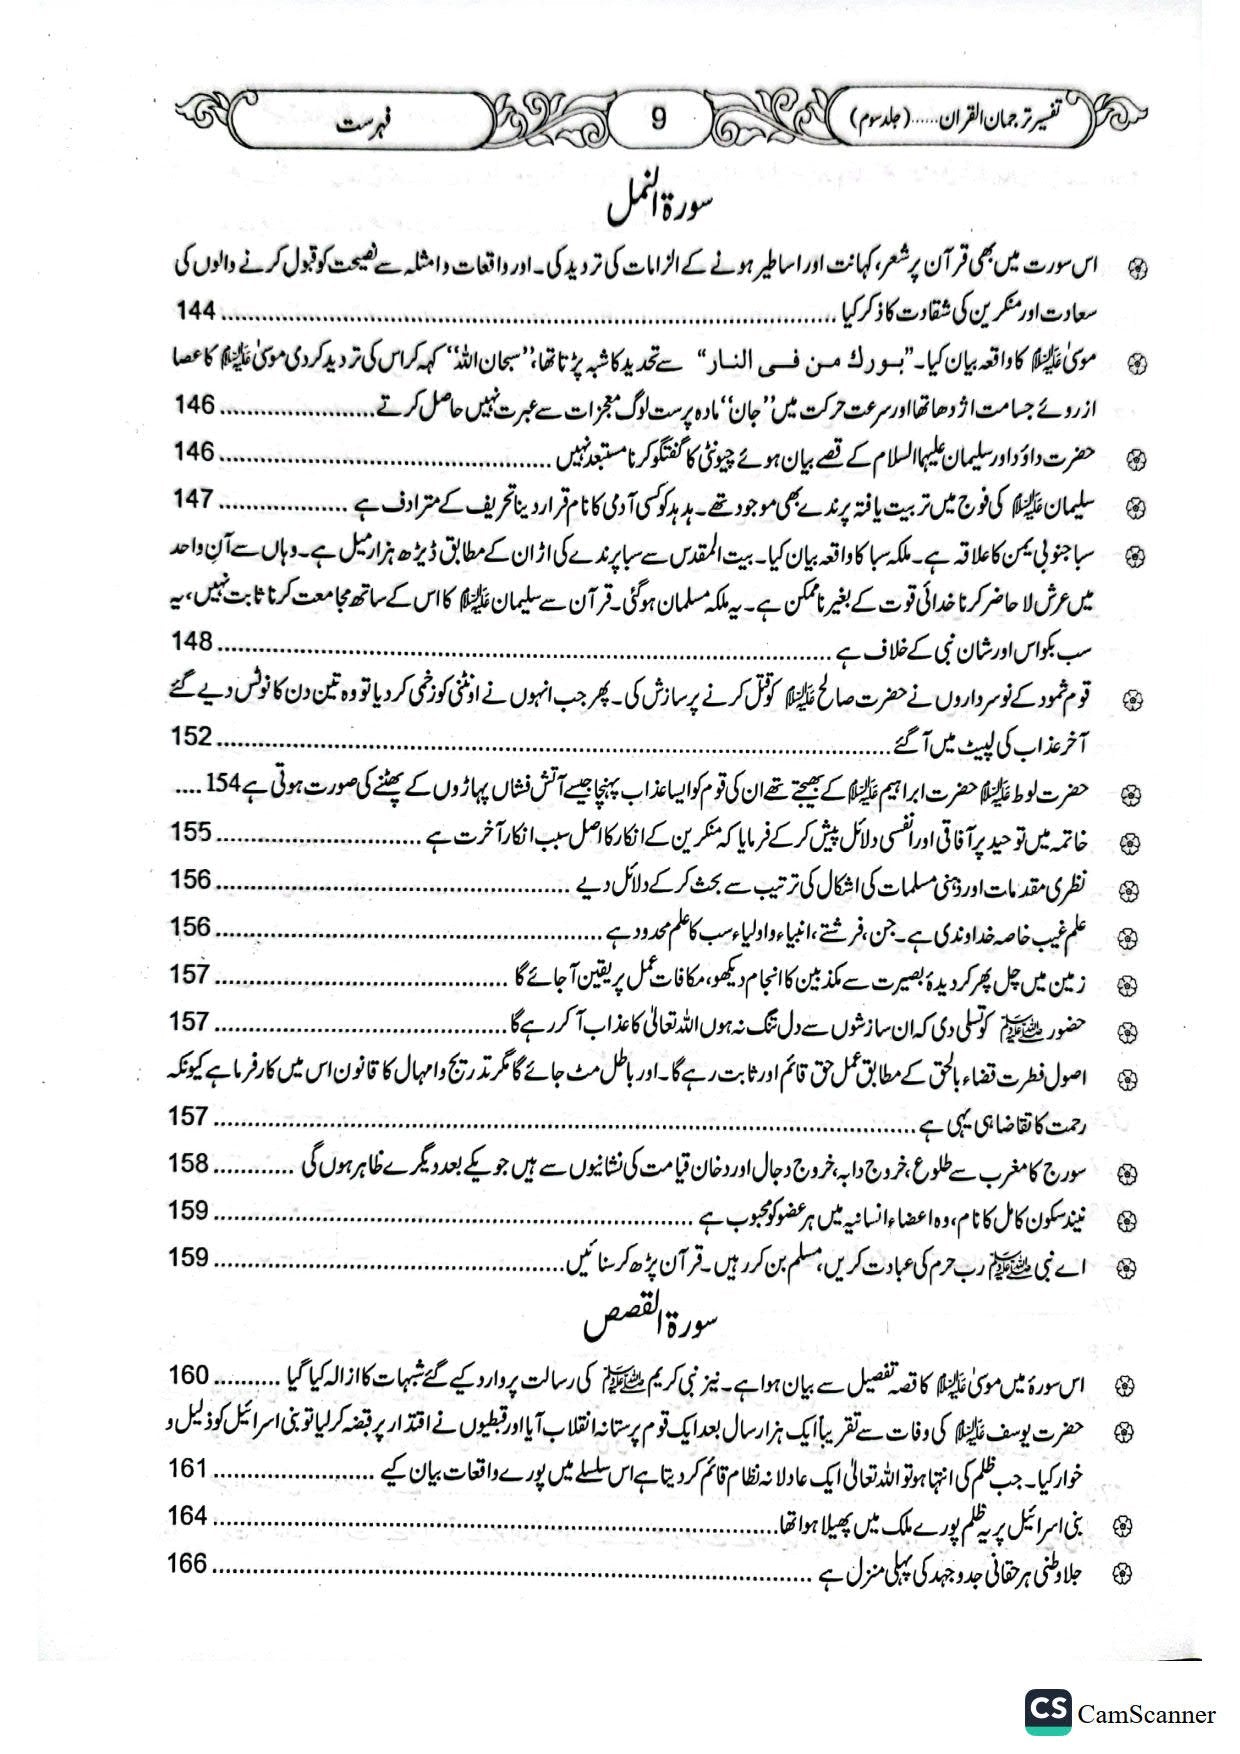 تفسیر ترجمان القرآن......(جلد سوم)
9
فہرست
سورۃ النمل
اس سورت میں بھی قرآن پر شعر، کہانت اور اساطیر ہونے کے الزامات کی تردید کی۔ اور واقعات و امثلہ سے نصیحت کو قبول کرنے والوں کی
سعادت اور منکرین کی شقادت کا ذکر کیا ........ 144
موسیٰ علیہ السلام کا واقعہ بیان کیا۔ ”بورك من فی النار“ سے تحدید کا شبہ پڑتا تھا، ”سبحان اللہ“ کہہ کر اس کی تردید کر دی موسیٰ علیہ السلام کا عصا
از روئے جسامت اژدھا تھا اور سرعت حرکت میں ”جان“ مادہ پرست لوگ معجزات سے عبرت نہیں حاصل کرتے ........ 146
حضرت داؤد اور سلیمان علیہا السلام کے قصے بیان ہوئے چیونٹی کا گفتگو کرنا مستبعد نہیں ........ 146
سلیمان علیہ السلام کی فوج میں تربیت یافتہ پرندے بھی موجود تھے۔ ہدہد کو کسی آدمی کا نام قرار دینا تحریف کے مترادف ہے ........ 147
سبا جنوبی یمن کا علاقہ ہے۔ ملکہ سبا کا واقعہ بیان کیا۔ بیت المقدس سے سبا پرندے کی اڑان کے مطابق ڈیڑھ ہزار میل ہے۔ وہاں سے آنِ واحد
میں عرش لا حاضر کرنا خدائی قوت کے بغیر ناممکن ہے۔ یہ ملکہ مسلمان ہو گئی۔ قرآن سے سلیمان علیہ السلام کا اس کے ساتھ مجامعت کرنا ثابت نہیں، یہ
سب بکواس اور شان نبی کے خلاف ہے ........ 148
قوم ثمود کے نو سرداروں نے حضرت صالح علیہ السلام کو قتل کرنے پر سازش کی۔ پھر جب انہوں نے اونٹنی کو زخمی کر دیا تو وہ تین دن کا نوٹس دیے گئے
آخر عذاب کی لپیٹ میں آ گئے ........ 152
حضرت لوط علیہ السلام حضرت ابراہیم علیہ السلام کے بھیجتے تھے ان کی قوم کو ایسا عذاب پہنچا جیسے آتش فشاں پہاڑوں کے پھٹنے کی صورت ہوتی ہے 154 ....
خاتمہ میں توحید پر آفاقی اور انفسی دلائل پیش کر کے فرمایا کہ منکرین کے انکار کا اصل سبب انکار آخرت ہے ........ 155
نظری مقدمات اور ذہنی مسلمات کی اشکال کی ترتیب سے بحث کر کے دلائل دیے ........ 156
علم غیب خاصہ خداوندی ہے۔ جن، فرشتے، انبیاء و اولیاء سب کا علم محدود ہے ........ 156
زمین میں چل پھر کر دیدۂ بصیرت سے مکذبین کا انجام دیکھو، مکافات عمل پر یقین آ جائے گا ........ 157
حضور ﷺ کو تسلی دی کہ ان سازشوں سے دل تنگ نہ ہوں اللہ تعالیٰ کا عذاب آ کر رہے گا ........ 157
اصول فطرت قضاء بالحق کے مطابق عمل حق قائم اور ثابت رہے گا۔ اور باطل مٹ جائے گا مگر تدریج و امہال کا قانون اس میں کار فرما ہے کیونکہ
رحمت کا تقاضا ہی یہی ہے ........ 157
سورج کا مغرب سے طلوع، خروج دابہ، خروج دجال اور دخان قیامت کی نشانیوں سے ہیں جو یکے بعد دیگرے ظاہر ہوں گی ........ 158
نیند سکون کامل کا نام، وہ اعضاء انسانیہ میں ہر عضو کو محبوب ہے ........ 159
اے نبی ﷺ رب حرم کی عبادت کریں، مسلم بن کر رہیں۔ قرآن پڑھ کر سنائیں ........ 159
سورۃ القصص
اس سورۂ میں موسیٰ علیہ السلام کا قصہ تفصیل سے بیان ہوا ہے۔ نیز نبی کریم ﷺ کی رسالت پر وارد کیے گئے شبہات کا ازالہ کیا گیا ........ 160
حضرت یوسف علیہ السلام کی وفات سے تقریباً ایک ہزار سال بعد ایک قوم پرستانہ انقلاب آیا اور قبطیوں نے اقتدار پر قبضہ کر لیا تو بنی اسرائیل کو ذلیل و
خوار کیا۔ جب ظلم کی انتہا ہو تو اللہ تعالیٰ ایک عادلانہ نظام قائم کر دیتا ہے اس سلسلے میں پورے واقعات بیان کیے ........ 161
بنی اسرائیل پر یہ ظلم پورے ملک میں پھیلا ہوا تھا ........ 164
جلاوطنی ہر حقانی جدوجہد کی پہلی منزل ہے ........ 166
CS CamScanner